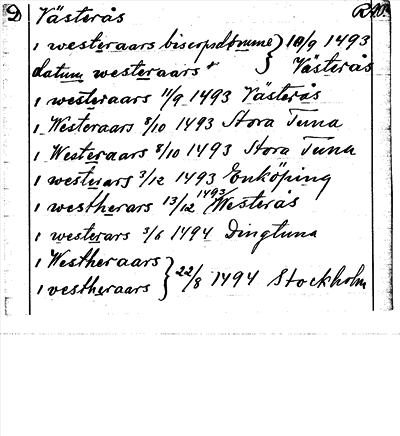 D Västerås RAp.
i westeraars biscopsdømme } 10/9 1493
datum westeraars Västerås
i westeraars 11/9 1493 Västerås
i Westeraars 8/10 1493 Stora Tuna
i Westeraars 8/10 1493 Stora Tuna
i westerars 3/12 1493 Enköping
i westherars 13/12 1493 Westerås
i westerars 3/6 1494 Dingtuna
i Westheraars
i vestheraars } 22/8 1494 Stockholm